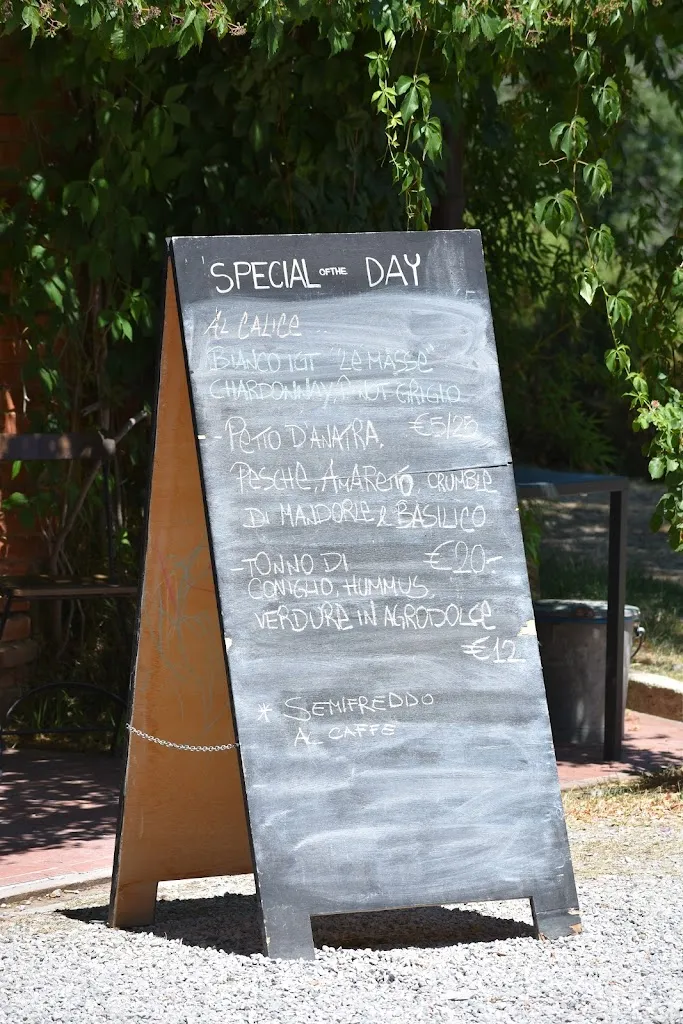 SPECIAL OF THE DAY
AL CALICE
BIANCO IGT "LE MASSE"
CHARDONNAY, PINOT GRIGIO
€5/25
- PETTO D'ANATRA,
PESCHE, AMARETTO, CRUMBLE
DI MANDORLE & BASILICO
€20-
- TONNO DI
CONIGLIO, HUMMUS,
VERDURE IN AGRODOLCE
€12
* SEMIFREDDO
AL CAFFE